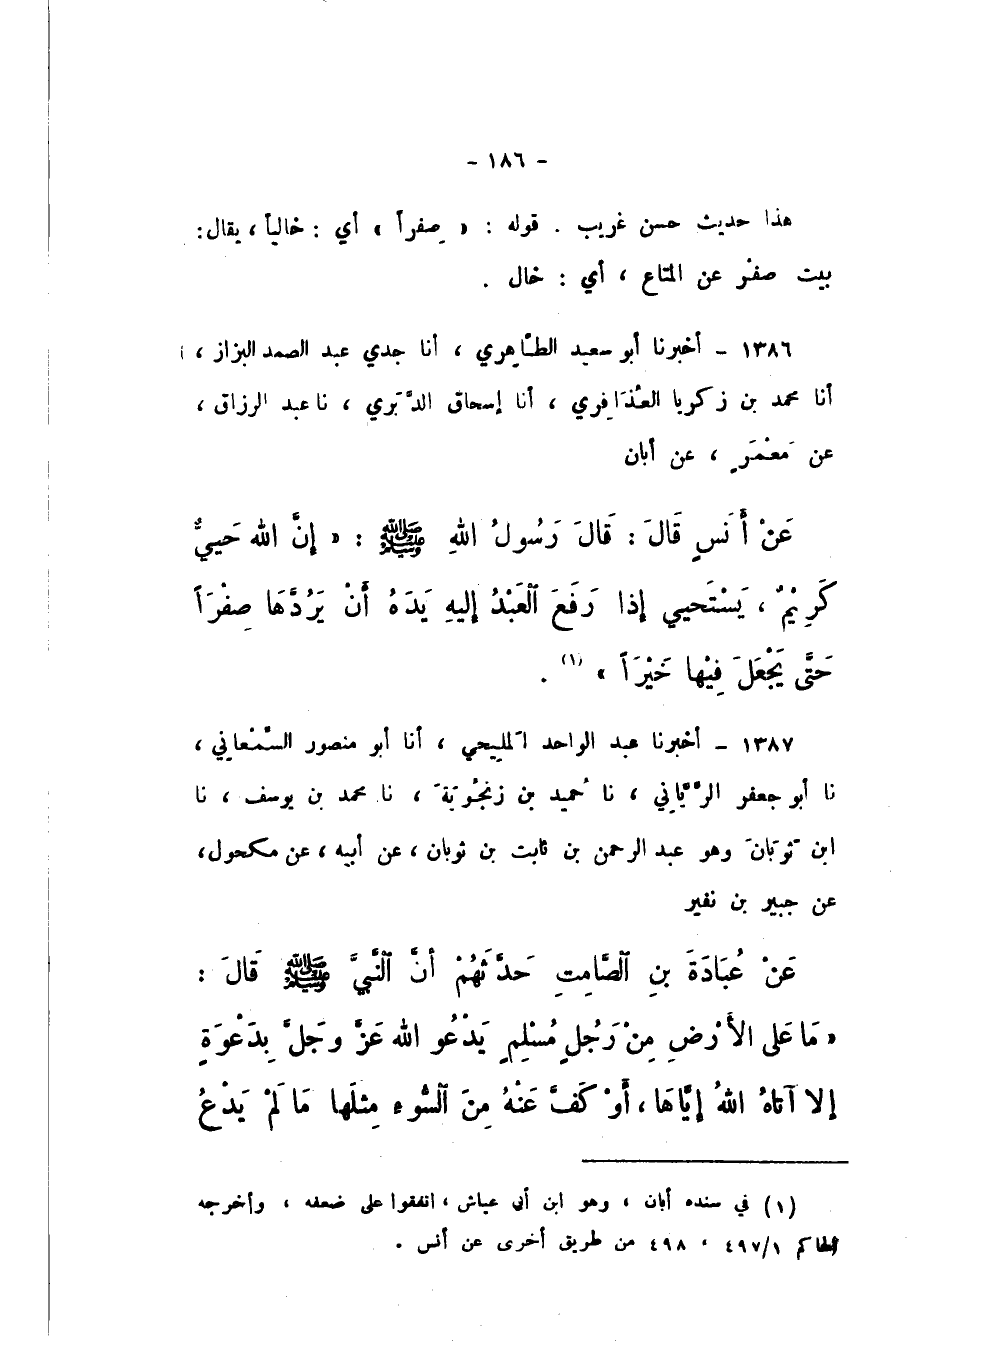 - ١٨٦ -
هذا حديث حسن غريب . قوله : « صِفراً » أي : خالياً ، يقال :
بيت صفْر عن المتاع ، أي : خال .
١٣٨٦ - أخبرنا أبو سعيد الطَّاهِري ، أنا جدي عبد الصمد البزاز ،
أنا محمد بن زكريا العُذَافِري ، أنا إسحاق الدَّبَري ، نا عبد الرزاق ،
عن مَعْمَرٍ ، عن أبان
عَنْ أَنَسٍ قَالَ : قَالَ رَسُولُ اللهِ ﷺ : « إِنَّ الله حَيِيٌّ
كَرِيْمٌ ، يَسْتَحيي إذا رَفَعَ الْعَبْدُ إليهِ يَدَهُ أَنْ يَرُدَّهَا صِفْرَاً
حَتَّى يَجْعَلَ فِيْها خَيْرَاً » (١) .
١٣٨٧ - أخبرنا عبد الواحد المَلِيحي ، أنا أبو منصور السَّمْعاني ،
نا أبو جعفر الرَّيَّاني ، نا حُميد بن زنجُويَة ، نا محمد بن يوسف ، نا
ابن ثَوبَانَ وهو عبد الرحمن بن ثابت بن ثوبان ، عن أبيه ، عن مكحول ،
عن جبير بن نفير
عَنْ عُبَادَةَ بنِ الصَّامِتِ حَدَّثَهُمْ أَنَّ النَّبيَّ ﷺ قَالَ :
« مَا عَلى الأَرْضِ مِنْ رَجُلٍ مُسْلِمٍ يَدْعُو الله عَزَّ وجَلَّ بِدَعْوَةٍ
إلا آتاهُ اللهُ إيَّاهَا ، أَوْ كَفَّ عَنْهُ مِنَ السُّوءِ مِثلَها مَا لَمْ يَدْعُ
(١) في سنده أبان ، وهو ابن أبي عياش ، اتفقوا على ضعفه ، وأخرجه
الحاكم ٤٩٧/١ ، ٤٩٨ من طريق أخرى عن أنس .